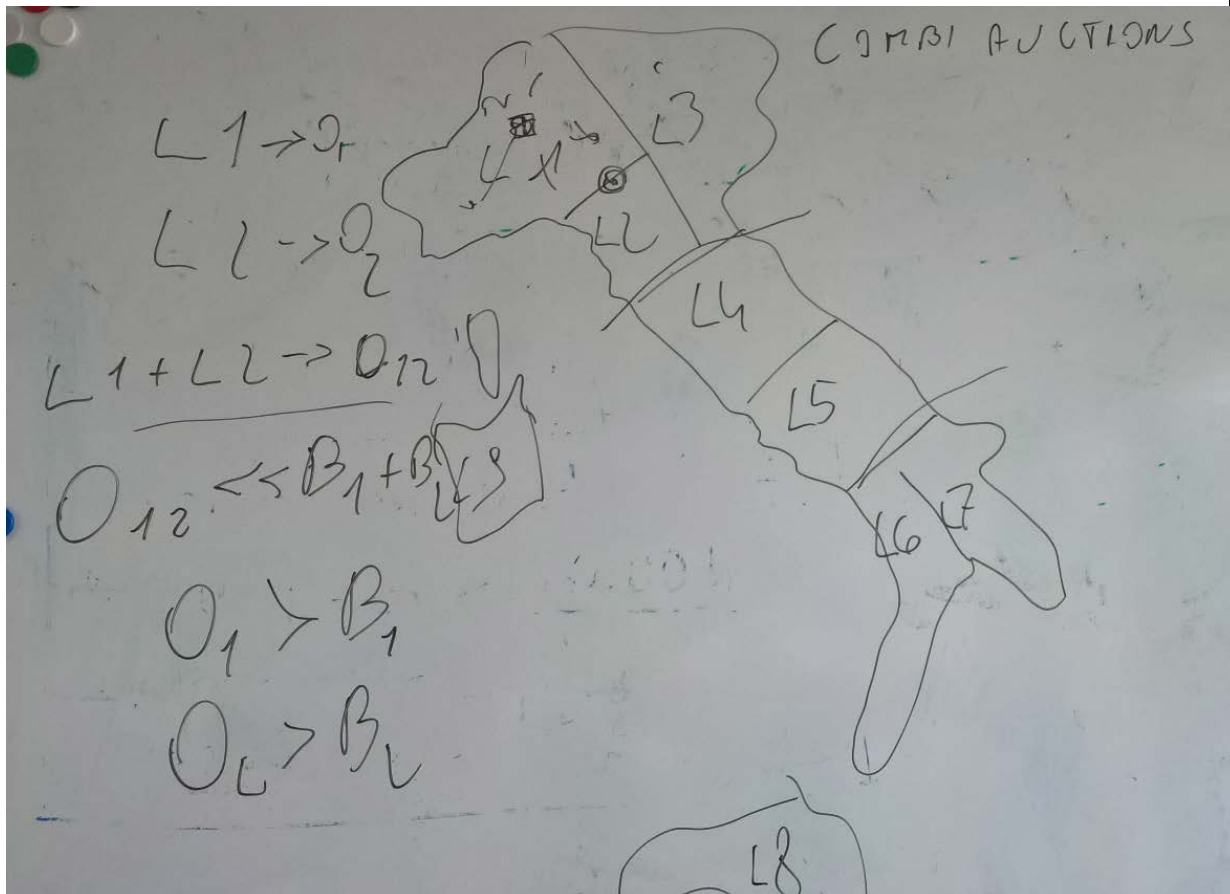 COMBI AUCTIONS
L1 → O₁
L2 → O₂
L1 + L2 → O₁₂
O₁₂ << B₁ + B₂
O₁ > B₁
O₂ > B₂
L1
L3
L2
L4
L5
L6
L7
L9
L8